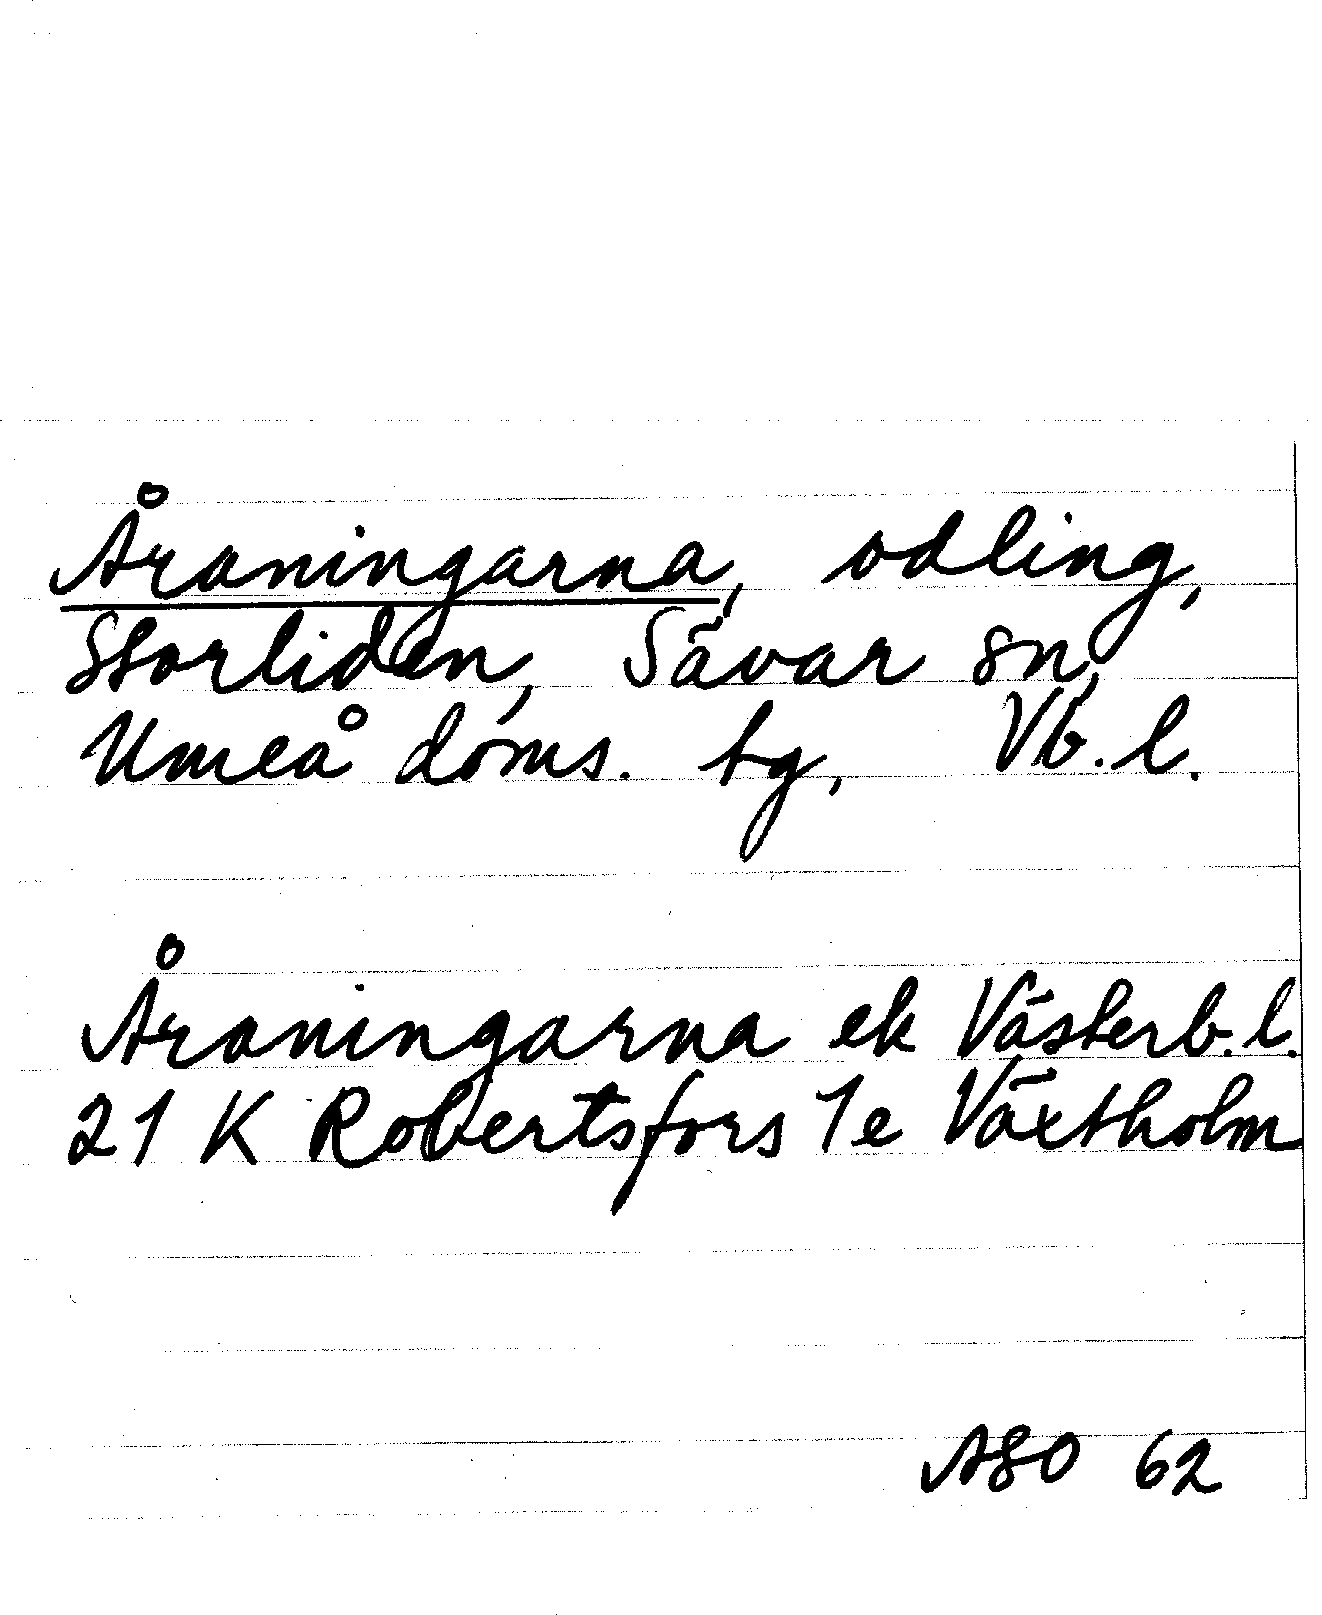 Åraningarna, odling,
Storliden, Sävar sn,
Umeå doms. tg, Vb. l.
Åraningarna ek Västerb. l.
21 K Robertsfors 1e Växtholm
ASO 62